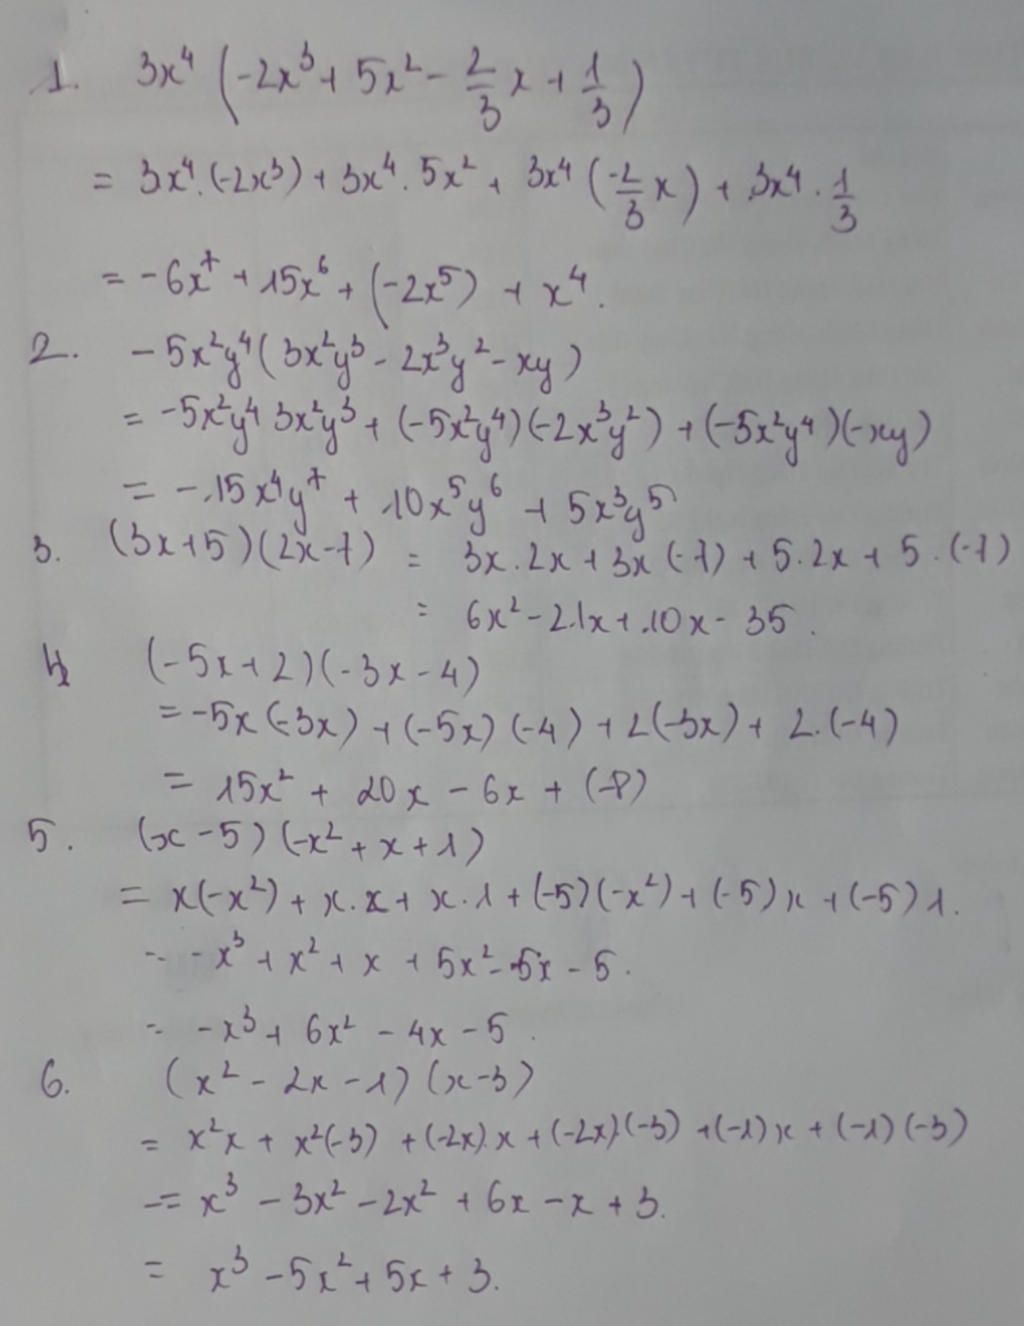 1. 3x⁴ (-2x³ + 5x² - 2/3 x + 1/3)
= 3x⁴.(-2x³) + 3x⁴.5x² + 3x⁴ (-2/3 x) + 3x⁴ . 1/3
= -6x⁷ + 15x⁶ + (-2x⁵) + x⁴.
2. -5x²y⁴(3x²y³ - 2x³y² - xy)
= -5x²y⁴ 3x²y³ + (-5x²y⁴)(-2x³y²) + (-5x²y⁴)(-xy)
= -15x⁴y⁷ + 10x⁵y⁶ + 5x³y⁵
3. (3x+5)(2x-7) = 3x.2x + 3x(-7) + 5.2x + 5.(-7)
= 6x² - 21x + 10x - 35.
4 (-5x+2)(-3x-4)
= -5x(-3x) + (-5x)(-4) + 2(-3x) + 2.(-4)
= 15x² + 20x - 6x + (-8)
5. (x-5)(-x² + x + 1)
= x(-x²) + x.x + x.1 + (-5)(-x²) + (-5)x + (-5)1.
= -x³ + x² + x + 5x² - 5x - 5.
= -x³ + 6x² - 4x - 5.
6. (x² - 2x - 1)(x-3)
= x²x + x²(-3) + (-2x).x + (-2x)(-3) + (-1)x + (-1)(-3)
= x³ - 3x² - 2x² + 6x - x + 3.
= x³ - 5x² + 5x + 3.